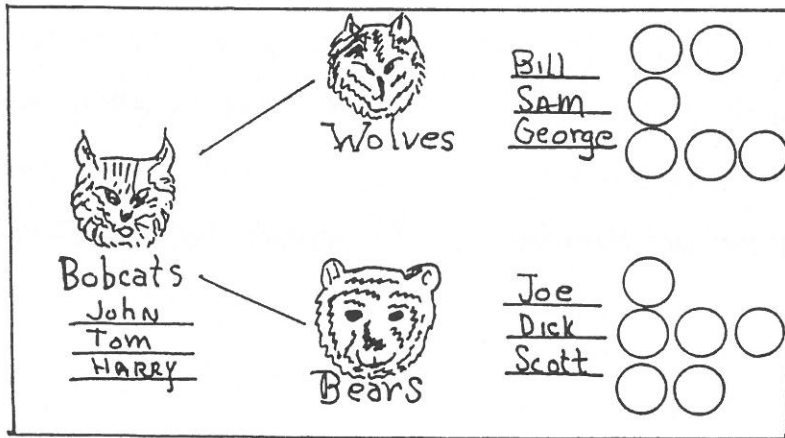 Bobcats
John
Tom
HARRY
Wolves
Bill
SAM
George
Bears
Joe
Dick
Scott